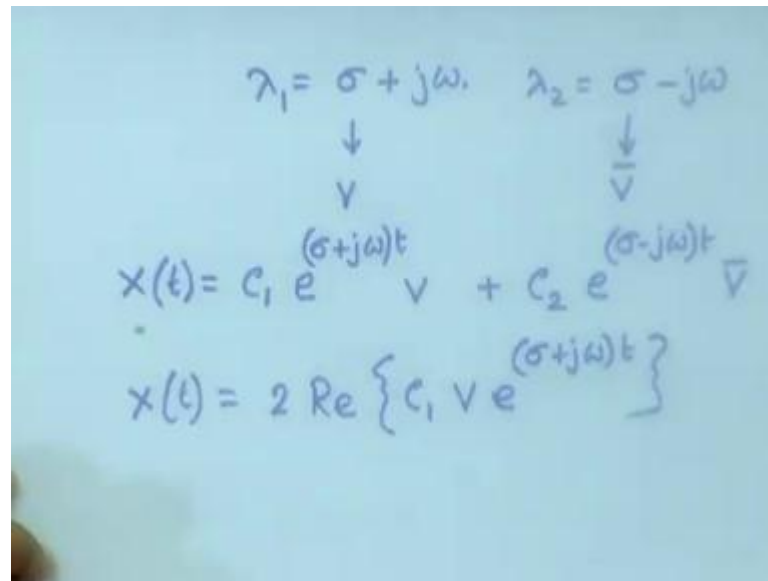 λ₁ = σ + jω. λ₂ = σ - jω
↓ ↓
v v̅
x(t) = c₁ e^(σ+jω)t v + c₂ e^(σ-jω)t v̅
x(t) = 2 Re {c₁ v e^(σ+jω)t}